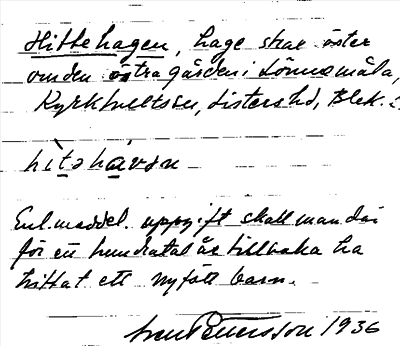 Hittehagen, hage strax öster
om den östra gården i Lönnemåla,
Kyrkhults sn, Listers hd, Blek. l.
hìtəhàvən
Enl. meddel. uppgift skall man där
för ett hundratal år tillbaka ha
hittat ett nyfött barn.
Sven Petersson 1936